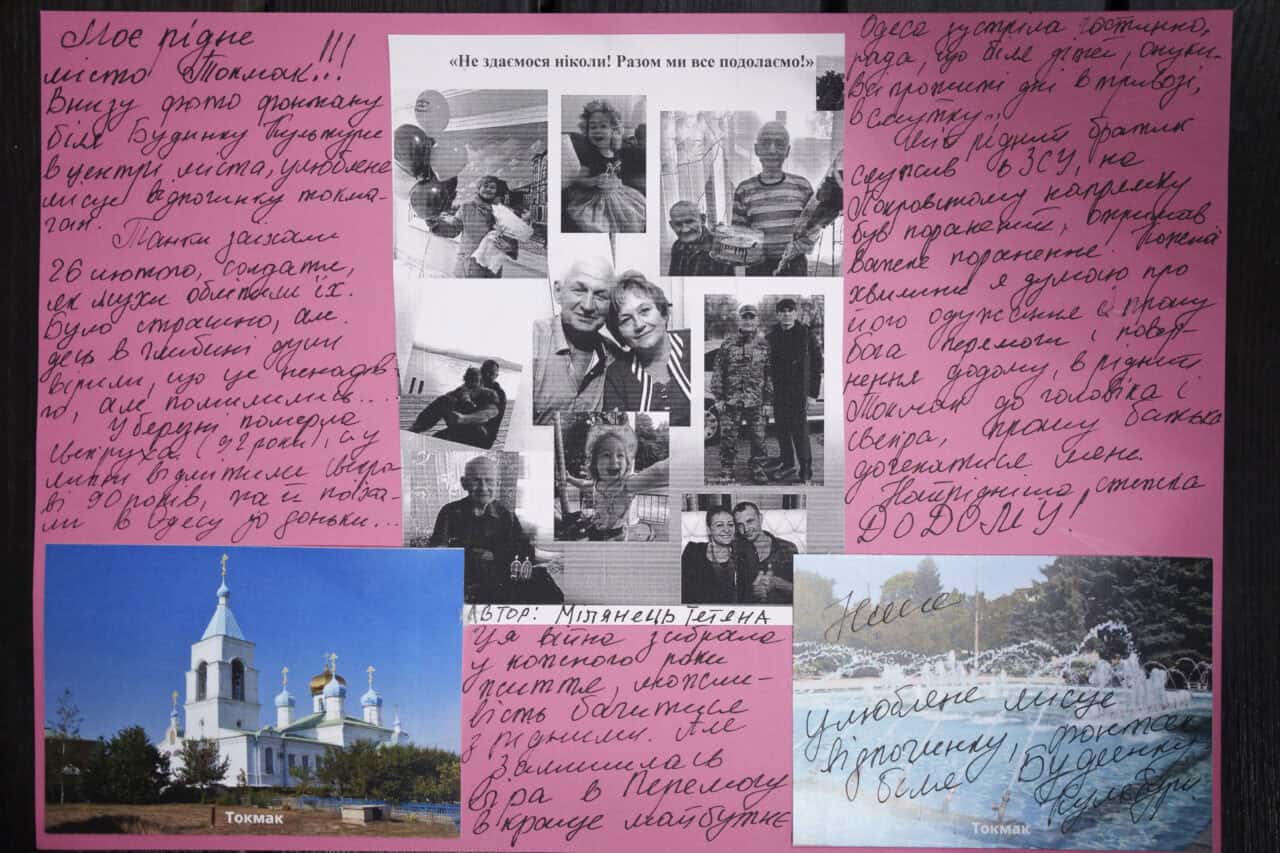 Моє рідне
місто Токмак!!!
Внизу фото фонтану
біля Будинку Культури
в центрі міста, улюблене
місце відпочинку токма-
чан.
Танки заїхали
26 лютого, солдати,
як мухи обліпили їх.
Було страшно, але
десь в глибині душі
вірили, що це ненадов-
го, але помилились...
У березні померла
свекруха (92 роки), а у
липні відмітили свекра
ві 90 років, та й поїха-
ли в Одесу до доньки...
«Не здаємося ніколи! Разом ми все подолаємо!»
Одеса зустріла гостинно,
рада, що біля дітей, онуки-
всі прожиті дні в тривозі,
в смутку...
Мій рідний братик
служив в ЗСУ, на
Покровському напрямку
був поранений, отримав
важке поранення. Кожної
хвилини я думаю про
його одужання і прошу
бога перемоги і повер-
нення додому, в рідний
Токмак до чоловіка і
свекра, прошу батька
дочекатися мене.
Найрідніша стежка
ДОДОМУ!
АВТОР: МІЛЯНЕЦЬ ТЕТЯНА
Ця війна забрала
у кожного роки
життя, можли-
вість бачитися
з рідними. Але
залишилась
віра в Перемогу
в краще майбутнє
Токмак
Наше
улюблене місце
відпочинку, фонтан
біля Будинку
Культури
Токмак